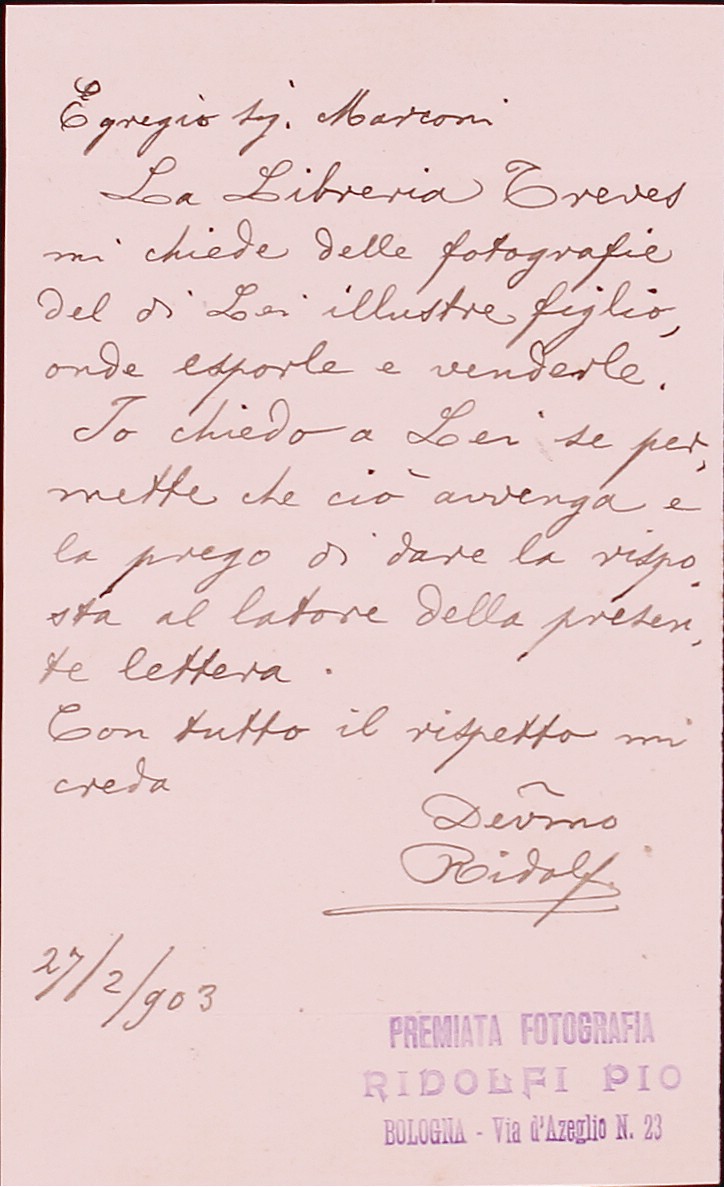 Egregio Sig. Marconi
La Libreria Treves
mi chiede delle fotografie
del di Lei illustre figlio,
onde esporle e venderle.
Io chiedo a Lei se per,
mette che ciò avvenga e
la prego di dare la rispo,
sta al latore della presen,
te lettera.
Con tutto il rispetto mi
creda
Dev̄mo
Ridolfi
27/2/903
PREMIATA FOTOGRAFIA
RIDOLFI PIO
BOLOGNA - Via d'Azeglio N. 23